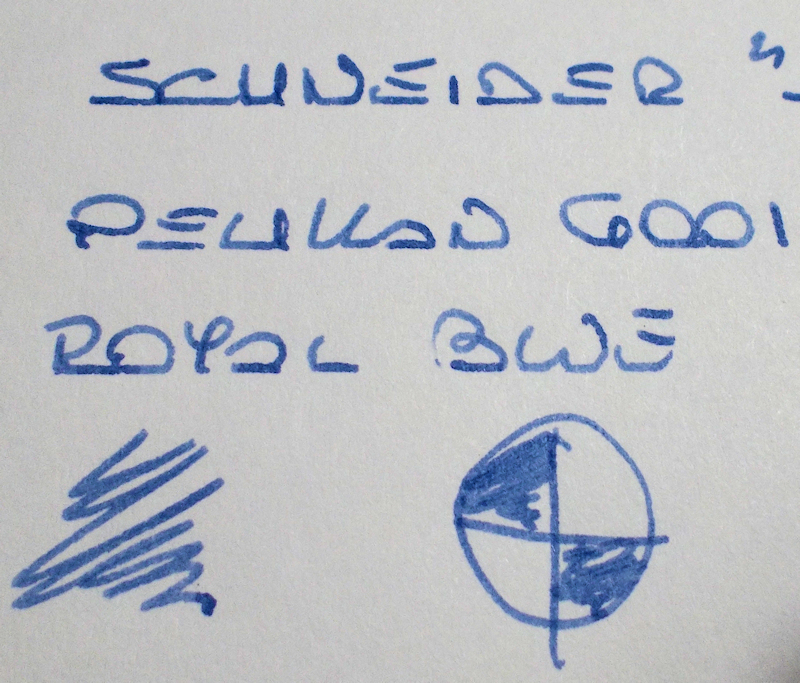 SCHNEIDER "
PELIKAN 6001
ROYAL BLUE